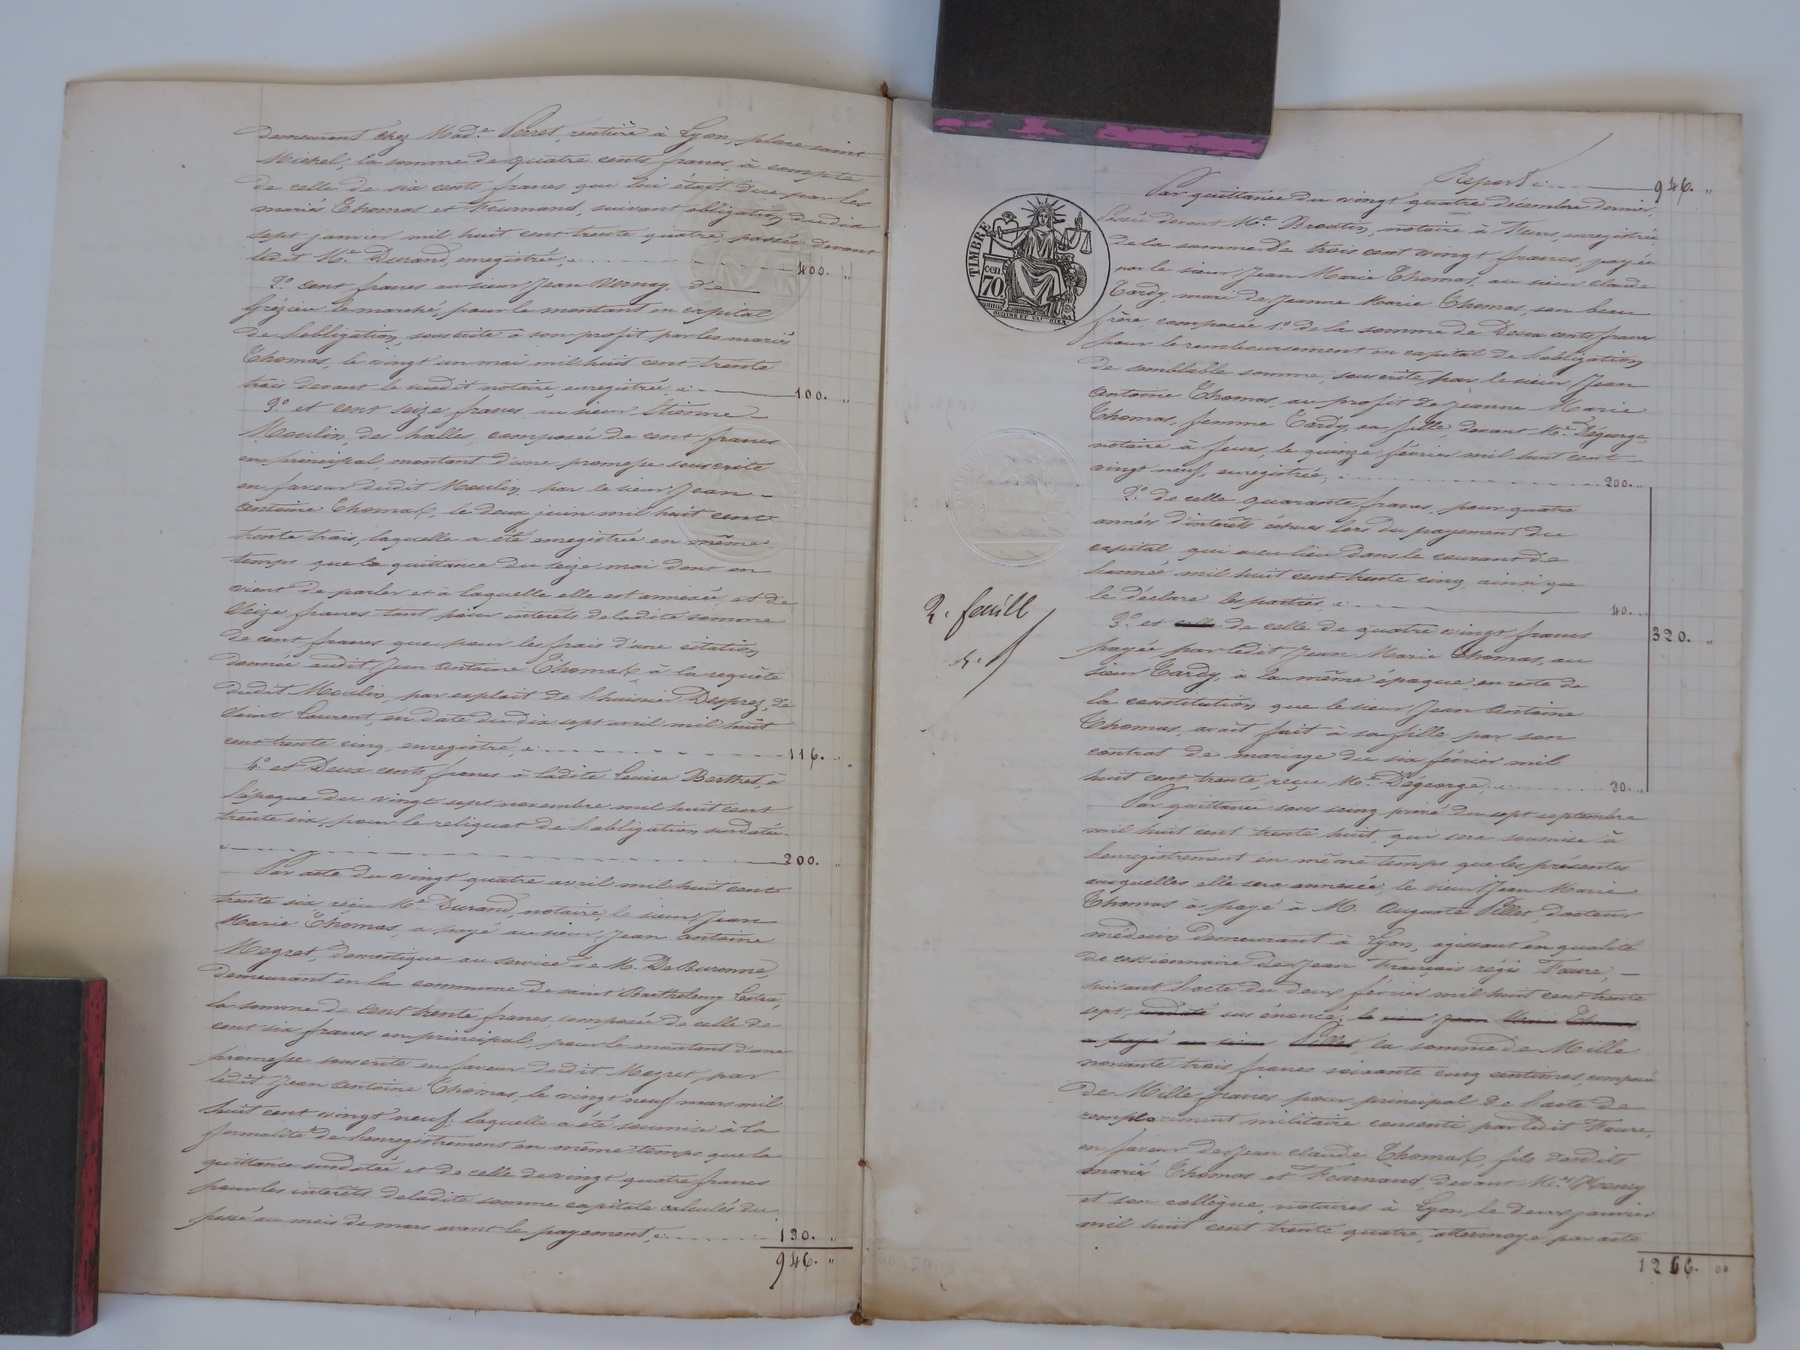 demeurant chez Made. Perret, rentière à Lyon, place saint
Michel, la somme de quatre cents francs, à compte
de celle de six cents francs qui lui était due par les
mariés Thomas et Fournand, suivant obligation du dix
sept janvier mil huit cent trente quatre, passée devant
ledit Me. Durand, enregistrée, 400. "
2º. cent francs au sieur Jean Vernay de
Grézieu le marché, pour le montant en capital
de l'obligation, souscrite à son profit par les mariés
Thomas, le vingt un mai mil huit cent trente
trois devant le susdit notaire, enregistrée, 100. "
3º. et cent seize francs au sieur Etienne
Moulin, des halles, composée de cent francs
en principal, montant d'une promesse souscrite
en faveur dudit Moulin, par le sieur Jean
Antoine Thomas, le deux juin mil huit cent
trente trois, laquelle a été enregistrée en même
temps que la quittance du seize mai dont on
vient de parler et à laquelle elle est annexée, et de
Seize francs tant pour intérêts de ladite somme
de cent francs que pour les frais d'une citation
donnée audit Jean Antoine Thomas, à la requête
dudit Moulin, par exploit de l'huissier Desprez, de
Saint Laurent, en date du dix sept avril mil huit
cent trente cinq, enregistré, 116. "
4º. et Deux cents francs à ladite Louise Berthet, à
l'époque du vingt sept novembre mil huit cent
trente six, pour le reliquat de l'obligation susdatée.
200. "
Par acte du vingt quatre avril mil huit cent
trente six reçu Me. Durand, notaire, le sieur Jean
Marie Thomas, a payé au sieur Jean Antoine
Megret, domestique au service de M. De Buronne,
demeurant en la commune de saint Barthelemy Lestra,
la somme de cent trente francs, composée de celle de
cent six francs en principal, pour le montant d'une
promesse souscrite en faveur dudit Megret, par
ledit Jean Antoine Thomas, le vingt neuf mars mil
huit cent vingt neuf, laquelle a été soumise à la
formalité de l'enregistrement en même temps que la
quittance susdatée et de celle de vingt quatre francs
pour les intérêts de ladite somme capitale calculés du
passé au mois de mars avant le payement, 130. "
946. "
Report 946. "
Par quittance du vingt quatre décembre dernier,
passée devant Me. notaire à Feurs, enregistrée
de la somme de trois cent vingt francs, payée
par le sieur Jean Marie Thomas, au sieur claude
Tardy, mari de Jeanne Marie Thomas, son beau
frère, composée 1º. de la somme de Deux cents francs
pour le remboursement en capital de l'obligation
de semblable somme, souscrite, par le sieur Jean
Antoine Thomas, au profit de Jeanne Marie
Thomas, femme Tardy, sa fille, devant Me. Dégeorge,
notaire à feurs, le quinze février mil huit cent
vingt neuf, enregistrée, 200. "
2º. de celle quarante francs, pour quatre
années d'intérêts échues lors du payement du
capital qui a eu lieu dans le courant de
l'année mil huit cent trente cinq, ainsi que
le déclare les parties 40. "
3º. et celle de celle de quatre vingt francs
payée par ledit Jean Marie Thomas, au
sieur Tardy, à la même époque, en reste de
la constitution que le sieur Jean Antoine
Thomas, avait fait à sa fille, par son
contrat de mariage du six février mil
huit cent trente, reçu Me. Dégeorge, 80. "
320. "
Par quittance sous seing privé du sept septembre
mil huit cent trente huit, qui sera soumise à
l'enregistrement en même temps que les présentes
auxquelles elle sera annexée, le sieur Jean Marie
Thomas a payé à M. Auguste Pillet, docteur
médecin demeurant à Lyon, agissant en qualité
de cessionnaire de Jean François régis Faure,
suivant l'acte du deux février mil huit cent trente
sept, sus énoncé, le sieur Jean Marie Thomas
a payé au sieur Pillet, la somme de Mille
nonante trois francs soixante cinq centimes, composée
de Mille francs pour principal de l'acte de
remplacement militaire consenti par ledit Faure,
en faveur de Jean claude Thomas, fils desdits
mariés Thomas et Fournand, devant Me. Henry
et son collègue, notaires à Lyon, le deux janvier
mil huit cent trente quatre, attermoyé par acte
1266. "
TIMBRE
cen
70
2e. feuill